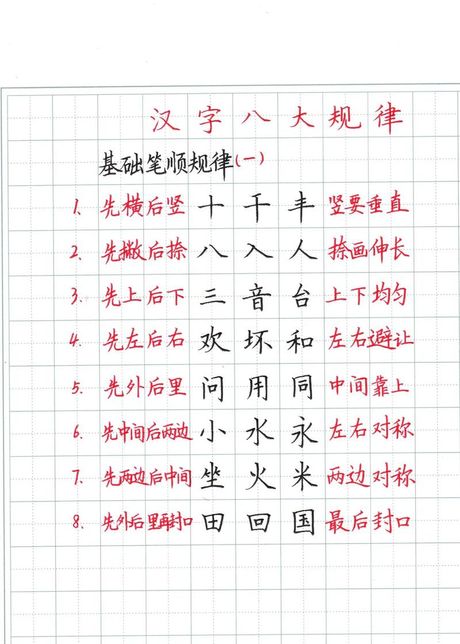 汉字八大规律
基础笔顺规律(一)
1. 先横后竖 十 千 丰 竖要垂直
2. 先撇后捺 八 入 人 捺画伸长
3. 先上后下 三 音 台 上下均匀
4. 先左后右 欢 坏 和 左右避让
5. 先外后里 问 用 同 中间靠上
6. 先中间后两边 小 水 永 左右对称
7. 先两边后中间 坐 火 米 两边对称
8. 先外后里再封口 田 回 国 最后封口